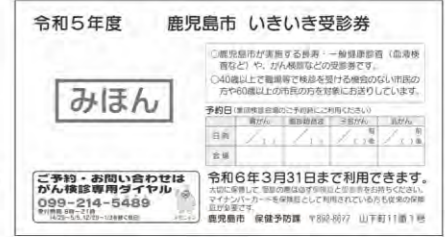 令和5年度　鹿児島市 いきいき受診券
みほん
○鹿児島市が実施する長寿・一般健康診査（血液検
査など）や、がん検診などの受診券です。
○40歳以上で職場等で検診を受ける機会のない市民の
方や60歳以上の市民の方を対象にお送りしています。
予約日
胃がん 子宮がん 乳がん
日時
会場
ご予約・お問い合わせは
がん検診専用ダイヤル
099-214-5489
令和6年3月31日まで利用できます。
マイナンバーカードを保険証として利用されている方も従来の保険
証が必要です。
鹿児島市 保健予防課 〒892-8677 山下町11番1号